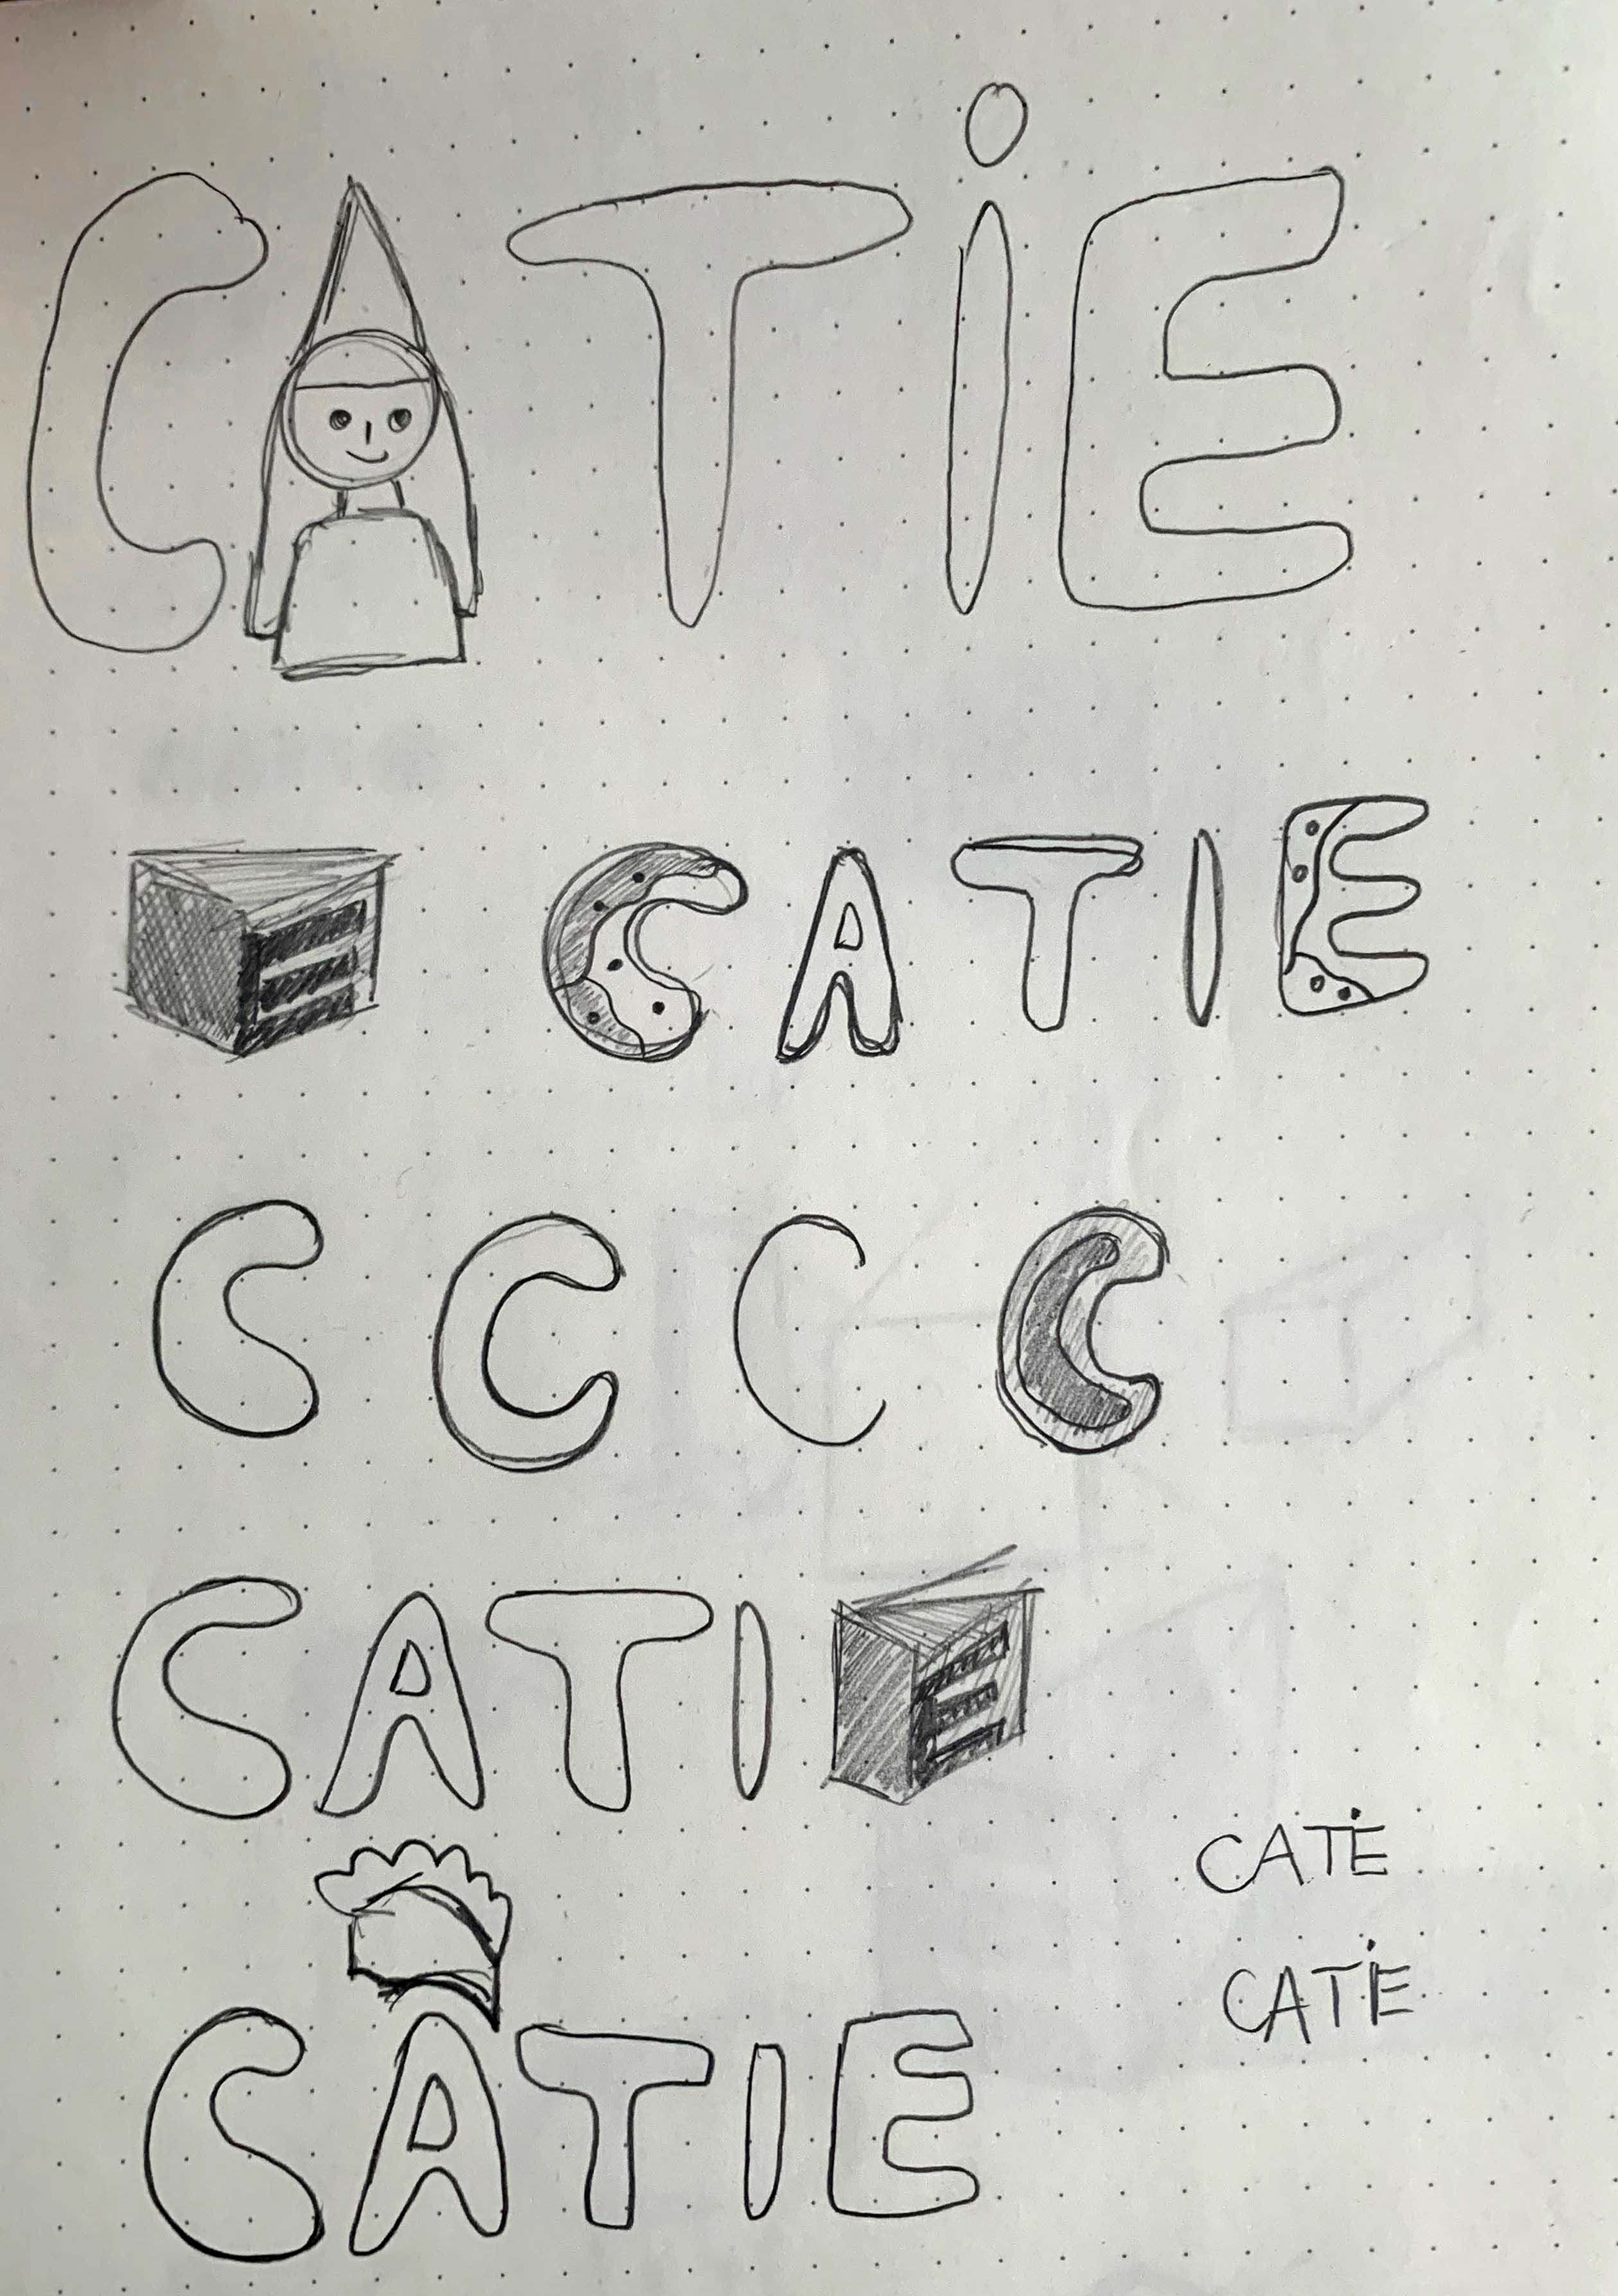 CATiE
E CATIE
C C C C
CATIE
CATĖ
CATĖ
CATIE